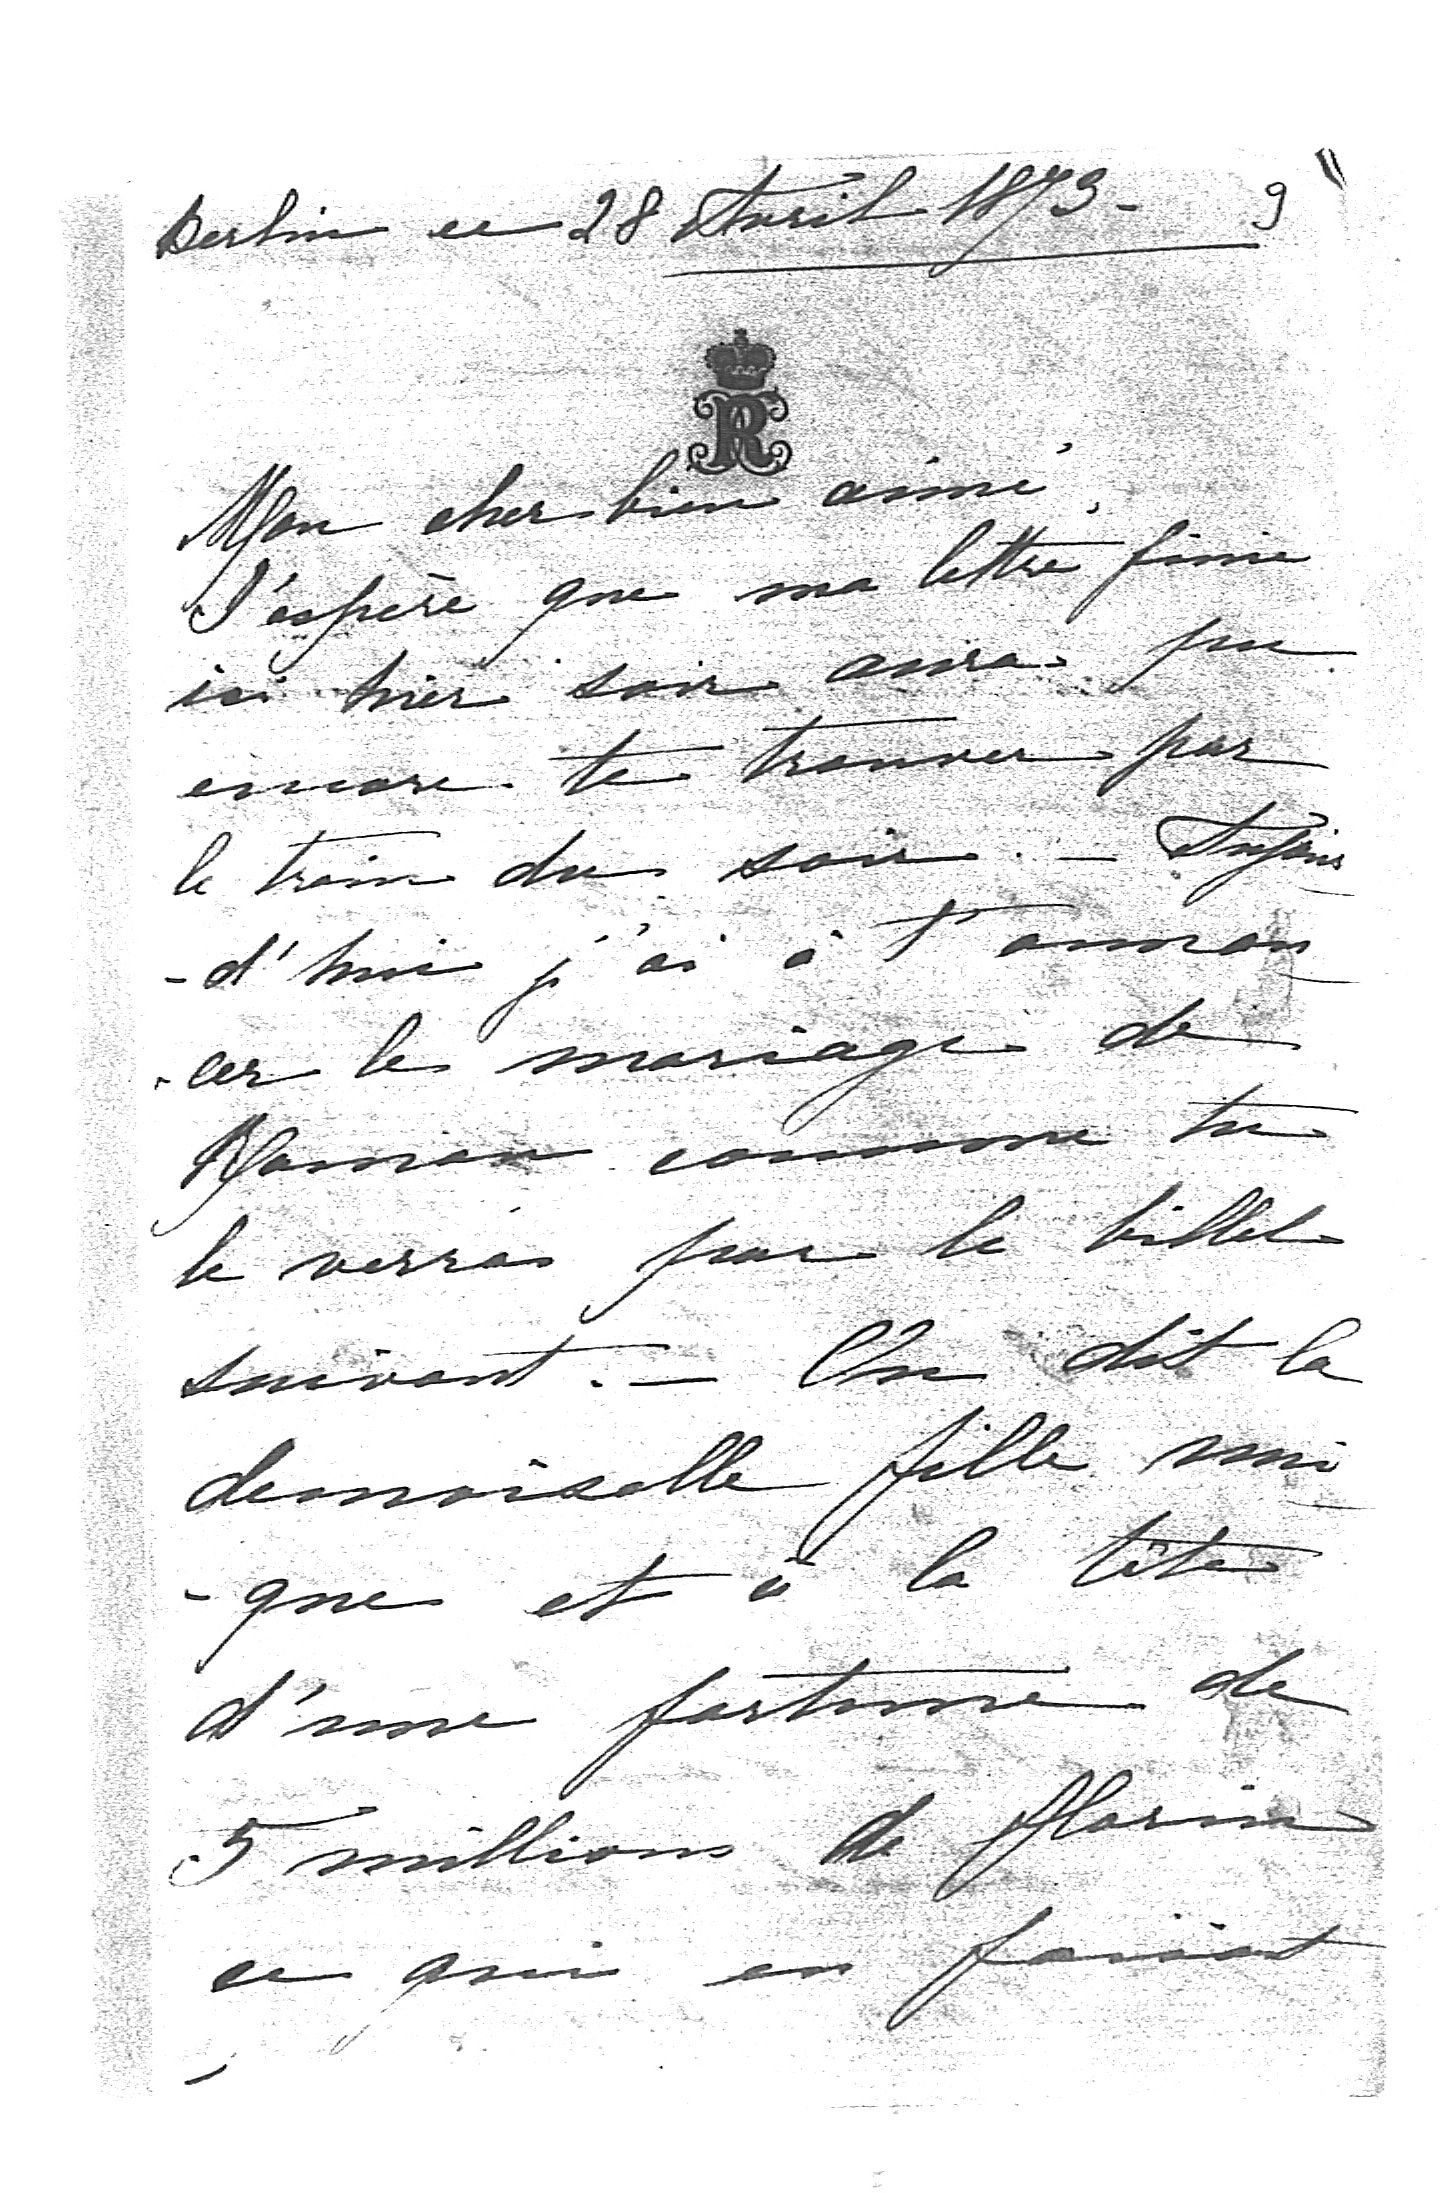 Berlin ce 28 Avril 1873 - 9
R
Mon cher bien aimé,
J'espère que ma lettre finie
ici hier soir aura pu
encore te trouver par
le train du soir. - Aujour
- d'hui j'ai à t'annon
- cer le mariage de
comme tu
le verras par le billet
suivant. - On dit la
demoiselle fille uni
- que et à la tête
d'une fortune de
5 millions de florins
ce qui en faisant